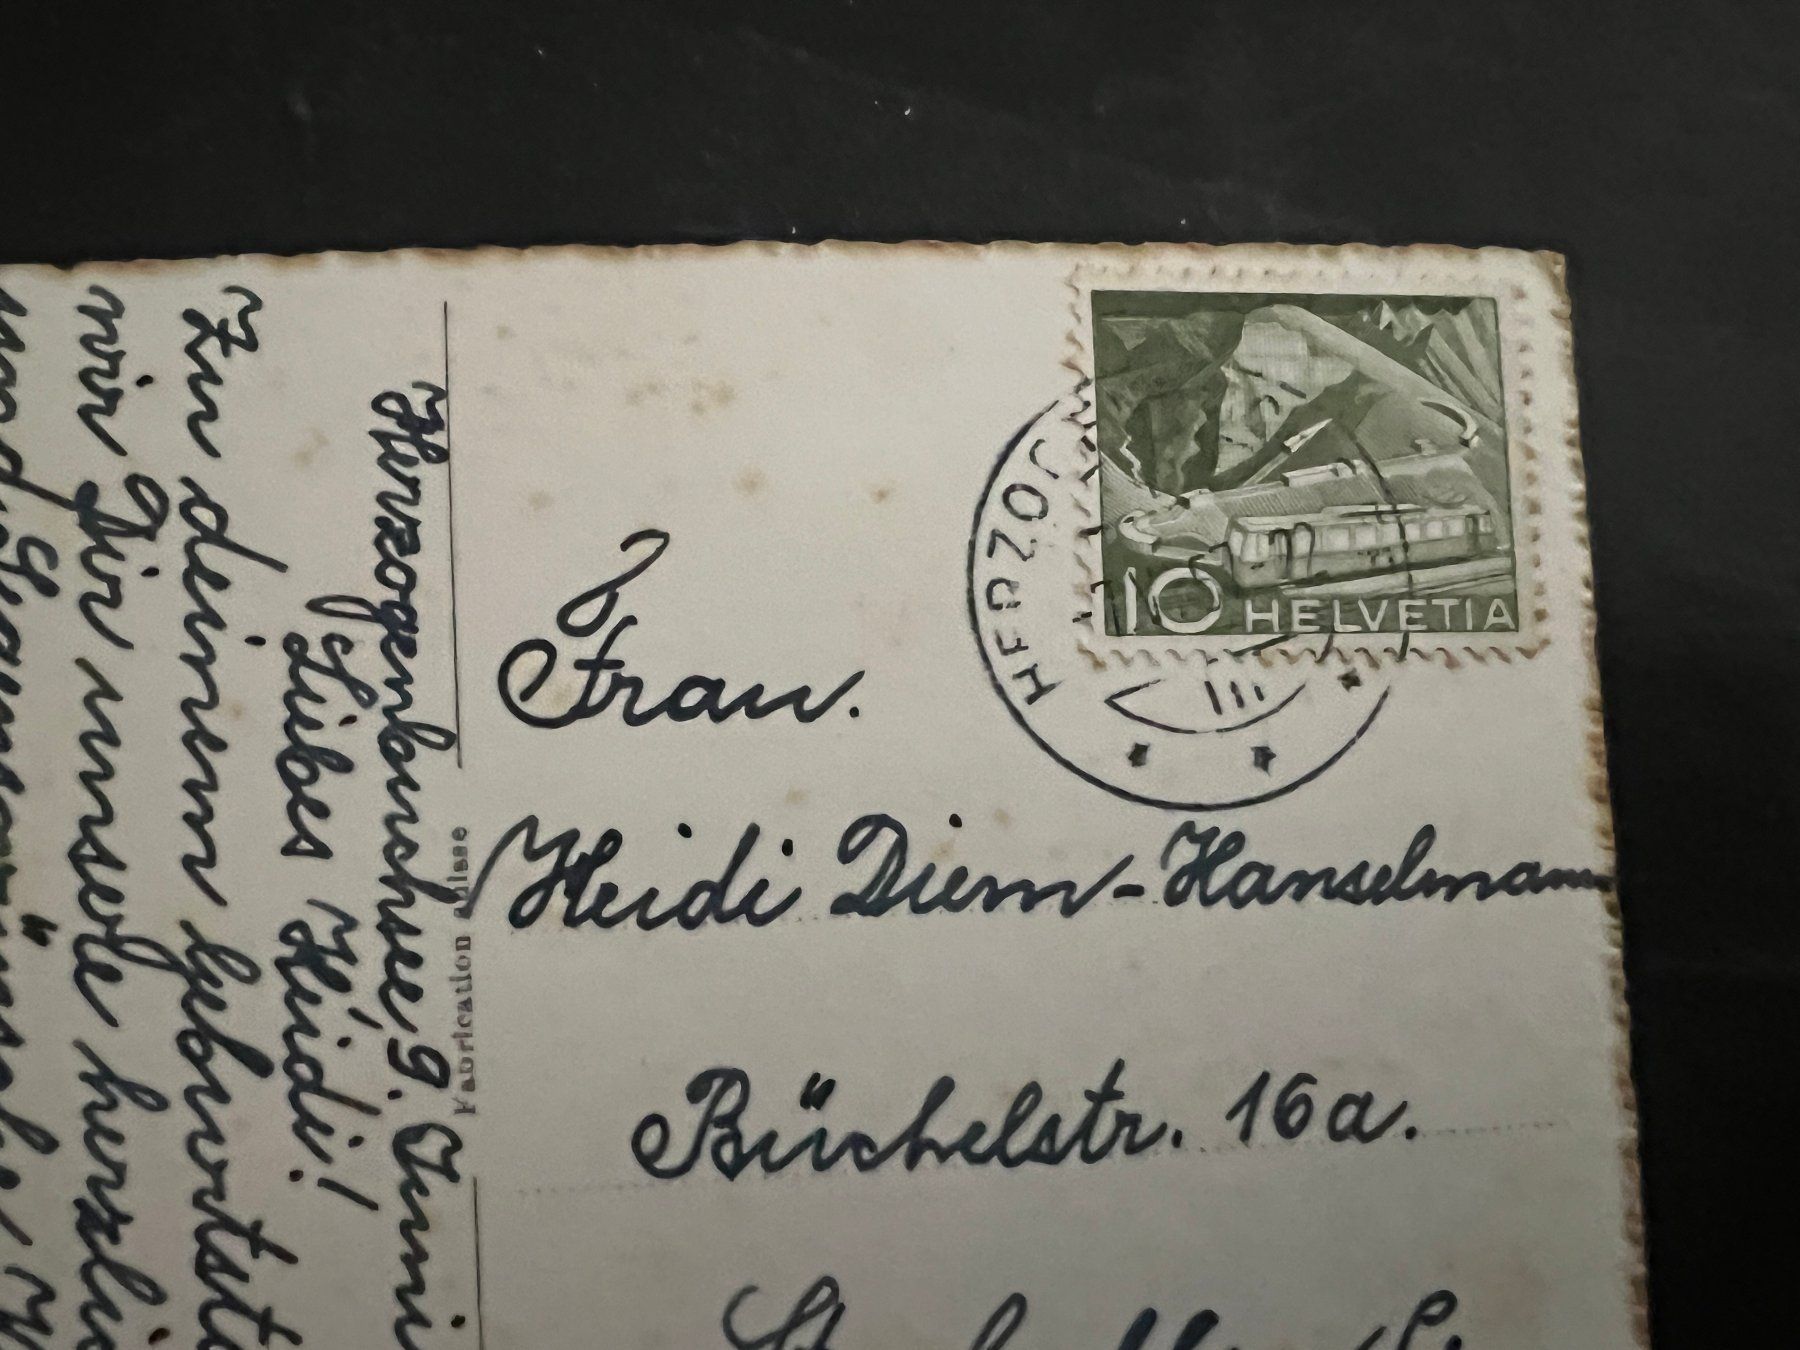 Herzogenbuchsee 9. Juni
Liebes Heidi!
Zu deinem Geburtsta
wir Dir unsere herzli
und
Fabrication suisse
10 HELVETIA
HERZOG
III
Frau.
Heidi Diem-Hanselmann
Büchelstr. 16a.